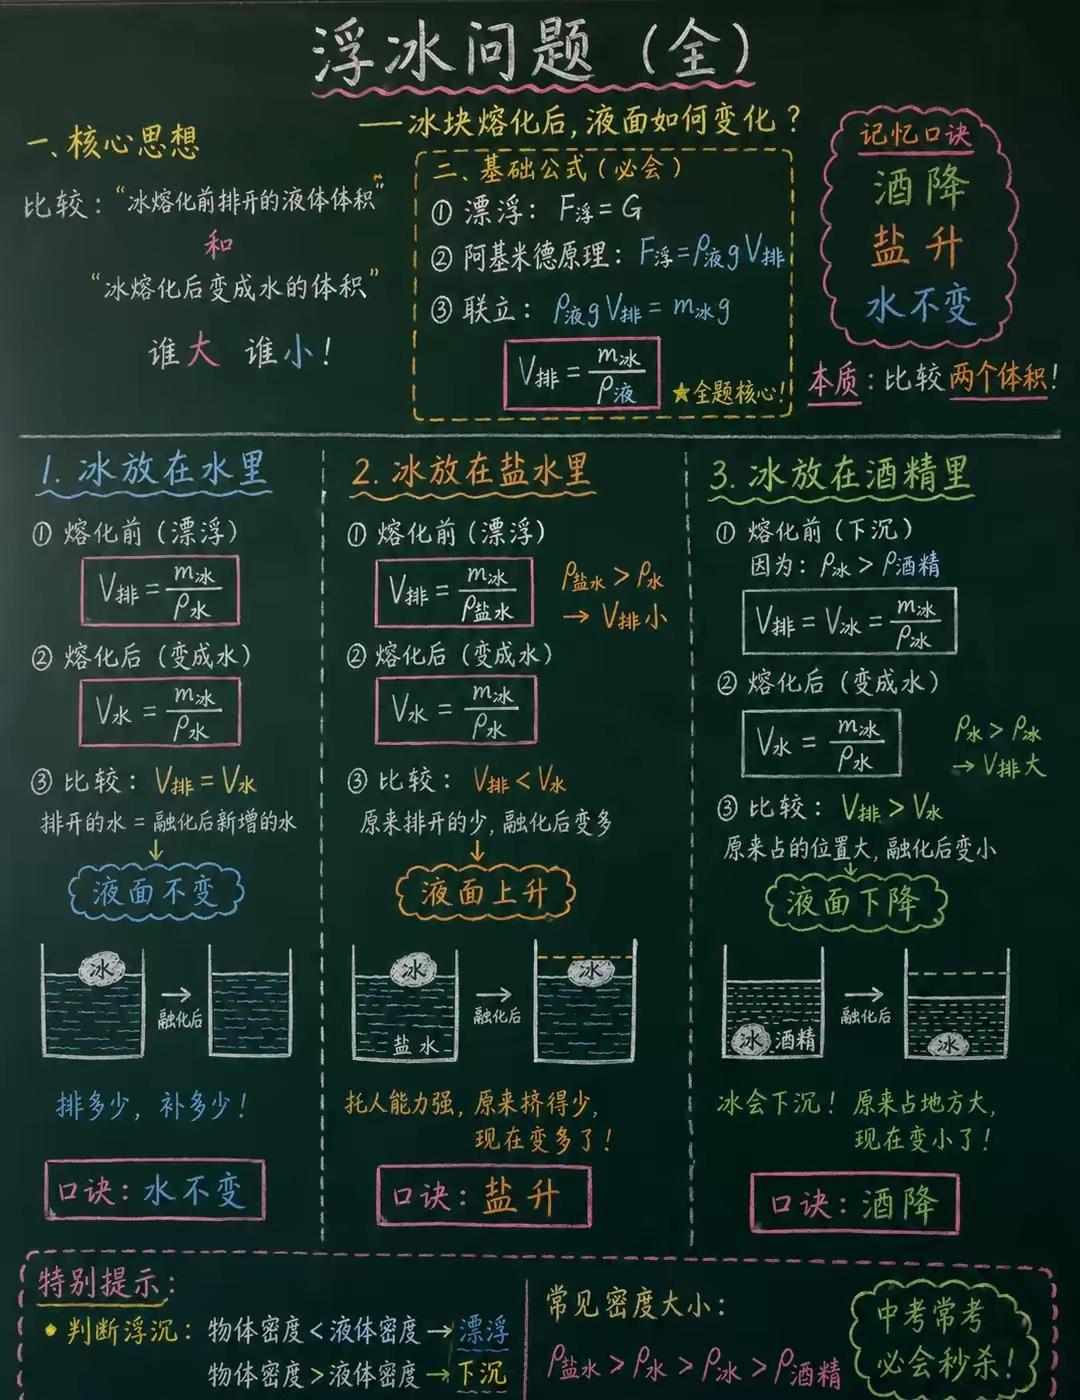 浮冰问题（全）
——冰块熔化后，液面如何变化？
一、核心思想
比较：“冰熔化前排开的液体体积”
和
“冰熔化后变成水的体积”
谁大 谁小！
二、基础公式（必会）
① 漂浮：F浮=G
② 阿基米德原理：F浮=ρ液gV排
③ 联立：ρ液gV排=m冰g
V排=m冰/ρ液
★全题核心！
记忆口诀
酒降
盐升
水不变
本质：比较两个体积！
1. 冰放在水里
① 熔化前（漂浮）
V排=m冰/ρ水
② 熔化后（变成水）
V水=m冰/ρ水
③ 比较：V排=V水
排开的水=融化后新增的水
↓
液面不变
冰
→
融化后
排多少，补多少！
口诀：水不变
2. 冰放在盐水里
① 熔化前（漂浮）
V排=m冰/ρ盐水
ρ盐水>ρ水
→V排小
② 熔化后（变成水）
V水=m冰/ρ水
③ 比较：V排<V水
原来排开的少，融化后变多
↓
液面上升
冰
盐水
→
融化后
冰
托人能力强，原来挤得少，
现在变多了！
口诀：盐升
3. 冰放在酒精里
① 熔化前（下沉）
因为：ρ冰>ρ酒精
V排=V冰=m冰/ρ冰
② 熔化后（变成水）
V水=m冰/ρ水
ρ水>ρ冰
→V排大
③ 比较：V排>V水
原来占的位置大，融化后变小
↓
液面下降
冰 酒精
→
融化后
冰
冰会下沉！原来占地方大，
现在变小了！
口诀：酒降
特别提示：
判断浮沉：物体密度<液体密度→漂浮
物体密度>液体密度→下沉
常见密度大小：
ρ盐水>ρ水>ρ冰>ρ酒精
中考常考
必会秒杀！